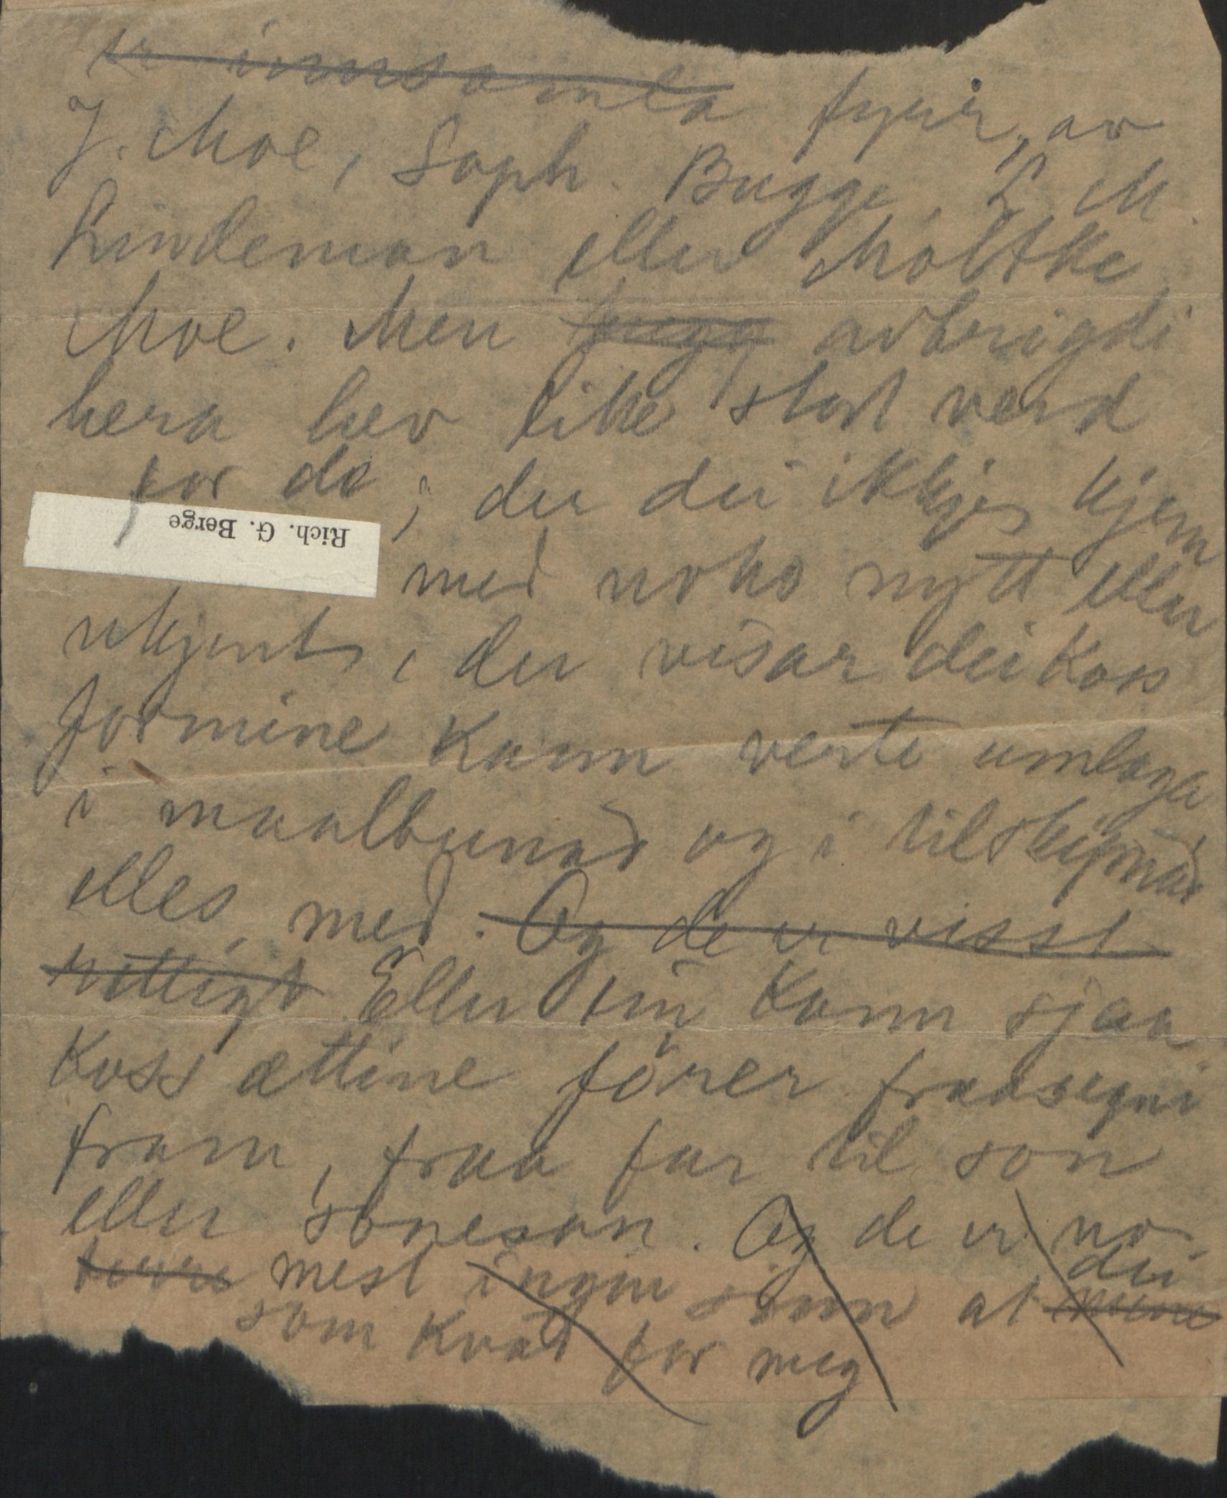 er innsamla fyrr, av
J. Moe, Soph. Bugge, L M.
Lindeman eller Moltke
Moe. Men avbrigdi
hera hev like stort verd
for de; der dei ikkje kjem
Rich. G. Berge
med noko nytt eller
ukjent, der visar dei koss
formine kann verte umlaga
i maalbunad og i tilskipnad
elles, med. Og de er visst
Eller ein kann sjaa
koss ættine förer fraasegni
fram, fraa far til son
eller soneson. Og de er no
mest ingen sònn at dei
som kvad for meg